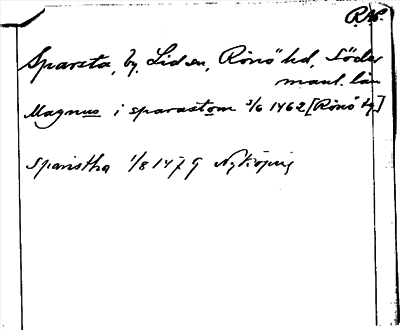 R.16.
Sparsta, by, Lid sn, Rönö hd, Söder
manl. län
Magnus i sparastom 3/6 1462 [Rönö hd]
Sparistha 1/8 1479 Nyköping